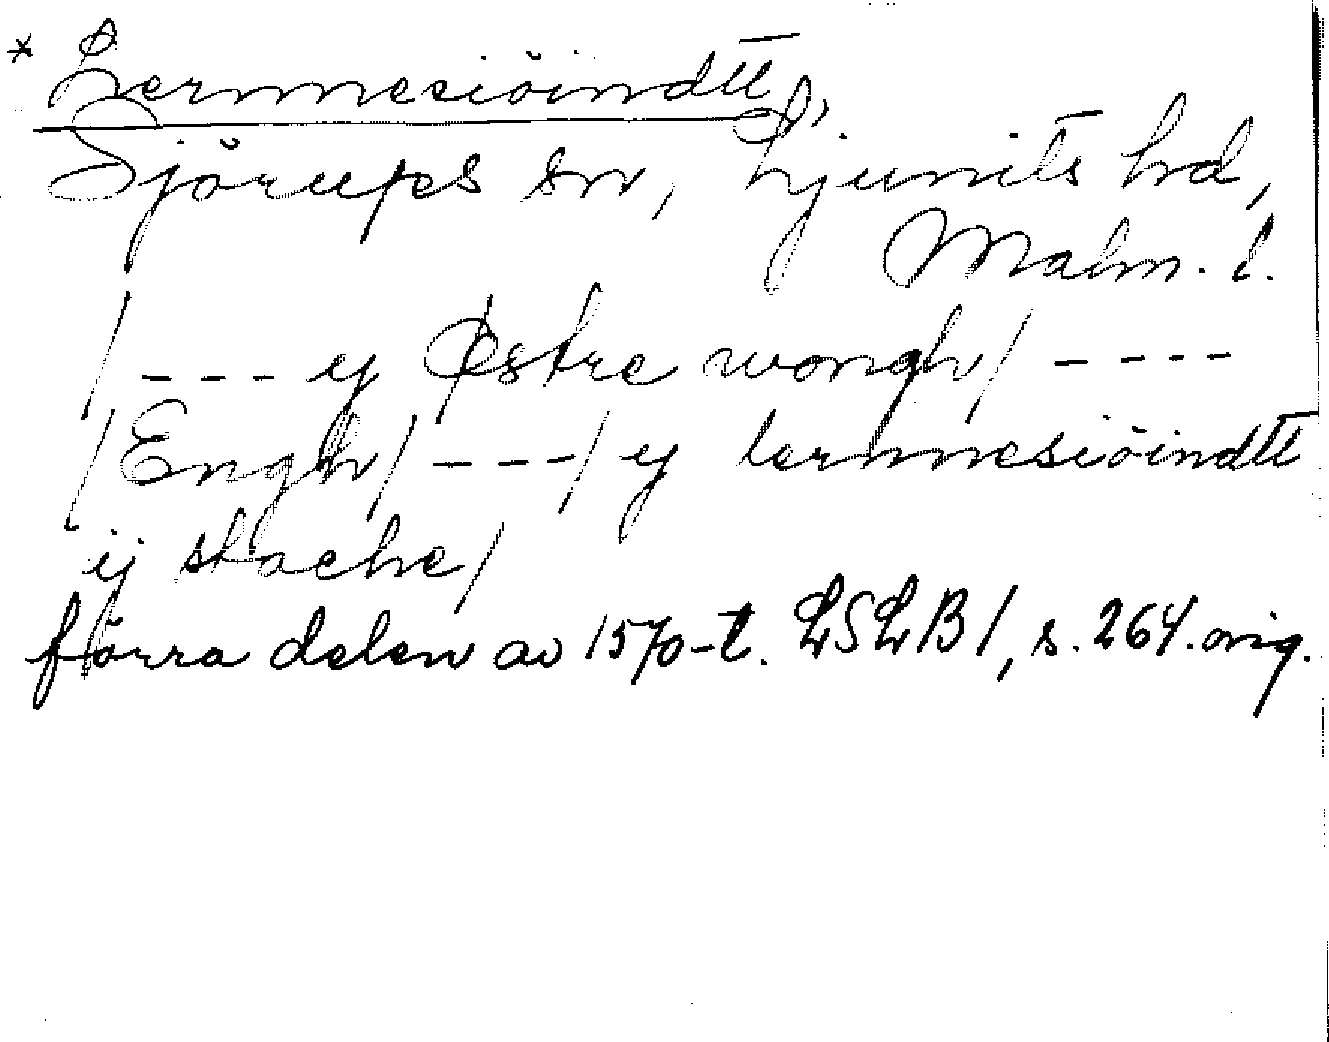 * Lernnesiöindtt,
Sjörups sn, Ljunits hd,
Malm. l.
/ - - - y Østre wongh/ - - - -
/Engh/ - - -/ y lernnesiöindtt
ij stache/
förra delen av 1570-t. LSLB1, s. 264. orig.